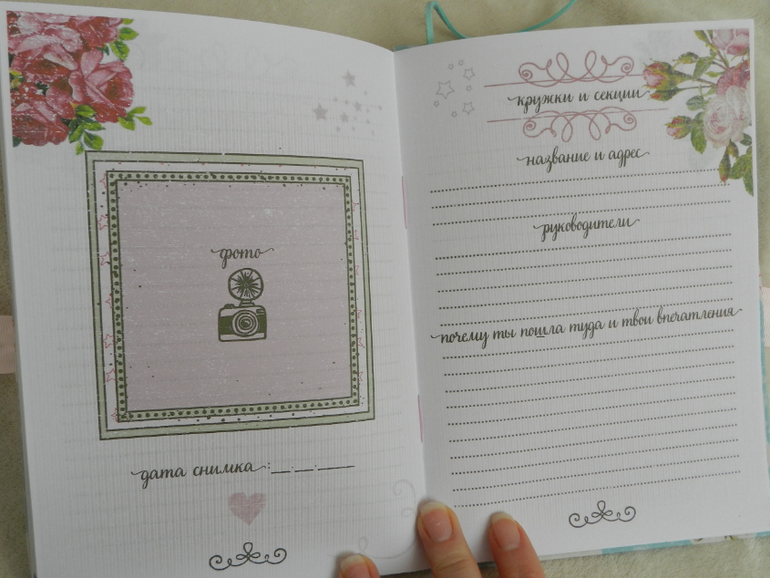 фото
дата снимка :__.__.____
кружки и секции
название и адрес
руководители
почему ты пошла туда и твои впечатления